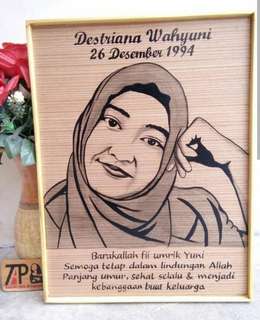 Destriana Wahyuni
26 Desember 1994
Barakallah fii umrik Yuni
Semoga tetap dalam lindungan Allah
Panjang umur, sehat selalu & menjadi
kebanggaan buat keluarga